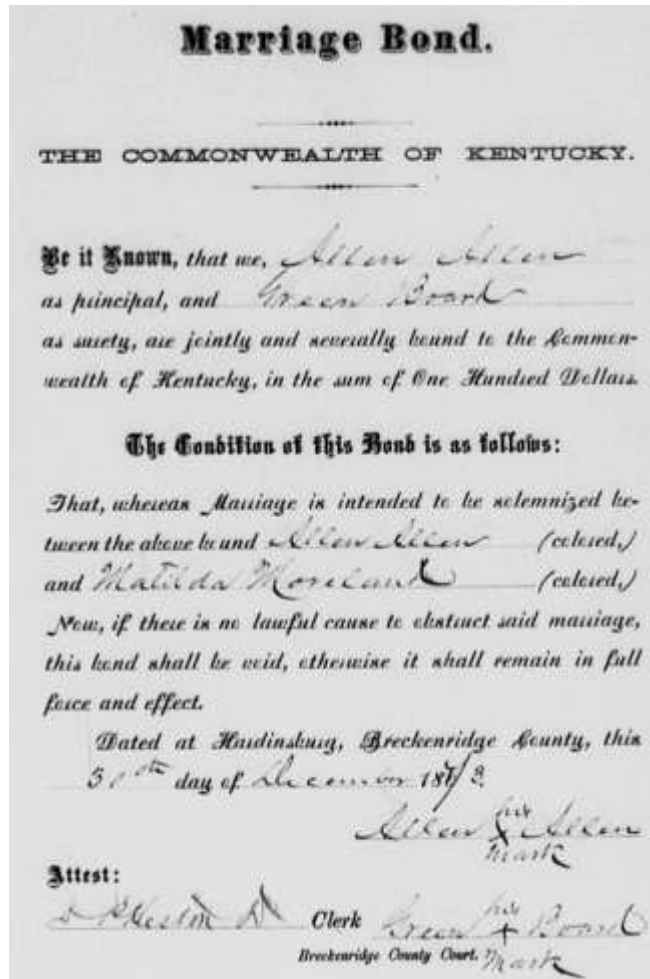 Marriage Bond.
THE COMMONWEALTH OF KENTUCKY.
Be it Known, that we, Allen Allen
as principal, and Green Board
as surety, are jointly and severally bound to the Common-
wealth of Kentucky, in the sum of One Hundred Dollars.
The Condition of this Bond is as follows:
That, whereas Marriage is intended to be solemnized be-
tween the above bound Allen Allen (colored,)
and Matilda Moreland (colored,)
Now, if there is no lawful cause to obstruct said marriage,
this bond shall be void, otherwise it shall remain in full
force and effect.
Dated at Hardinsburg, Breckenridge County, this
30th day of December 1873.
his
Allen X Allen
mark
Attest:
his
Clerk Green + Board
Breckenridge County Court. mark